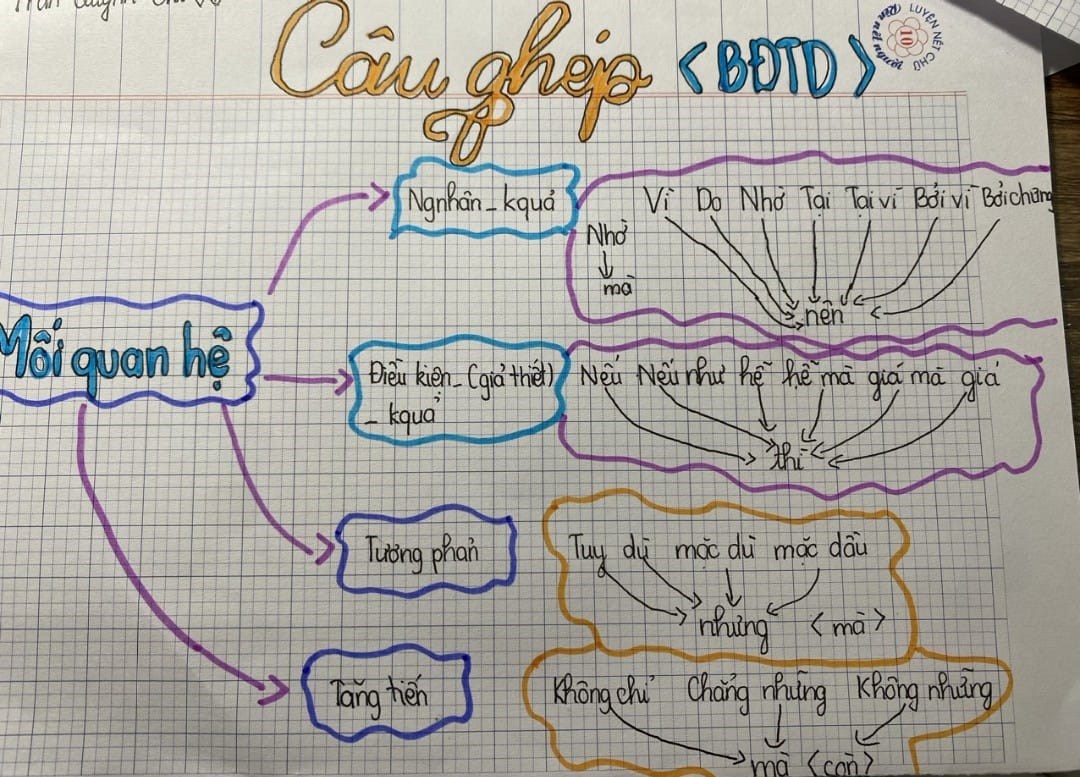 Trần Quỳnh Chi
Câu ghép <BĐTD>
LUYỆN NÉT CHỮ
Rèn nết người
10
Mối quan hệ
Ngnhân - kquả
Vì Do Nhờ Tại Tại vì Bởi vì Bởi chưng
Nhờ
mà
nên
Điều kiện - (giả thiết)
- kquả
Nếu Nếu như hễ hễ mà giá mà giá
thì
Tương phản
Tuy dù mặc dù mặc dầu
nhưng <mà>
Tăng tiến
Không chỉ Chẳng những Không những
mà <còn>